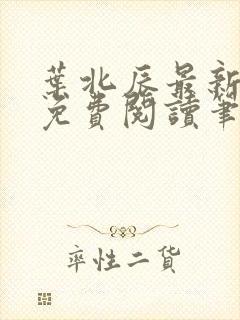 葉北辰最新
免費閱讀筆
率性二货